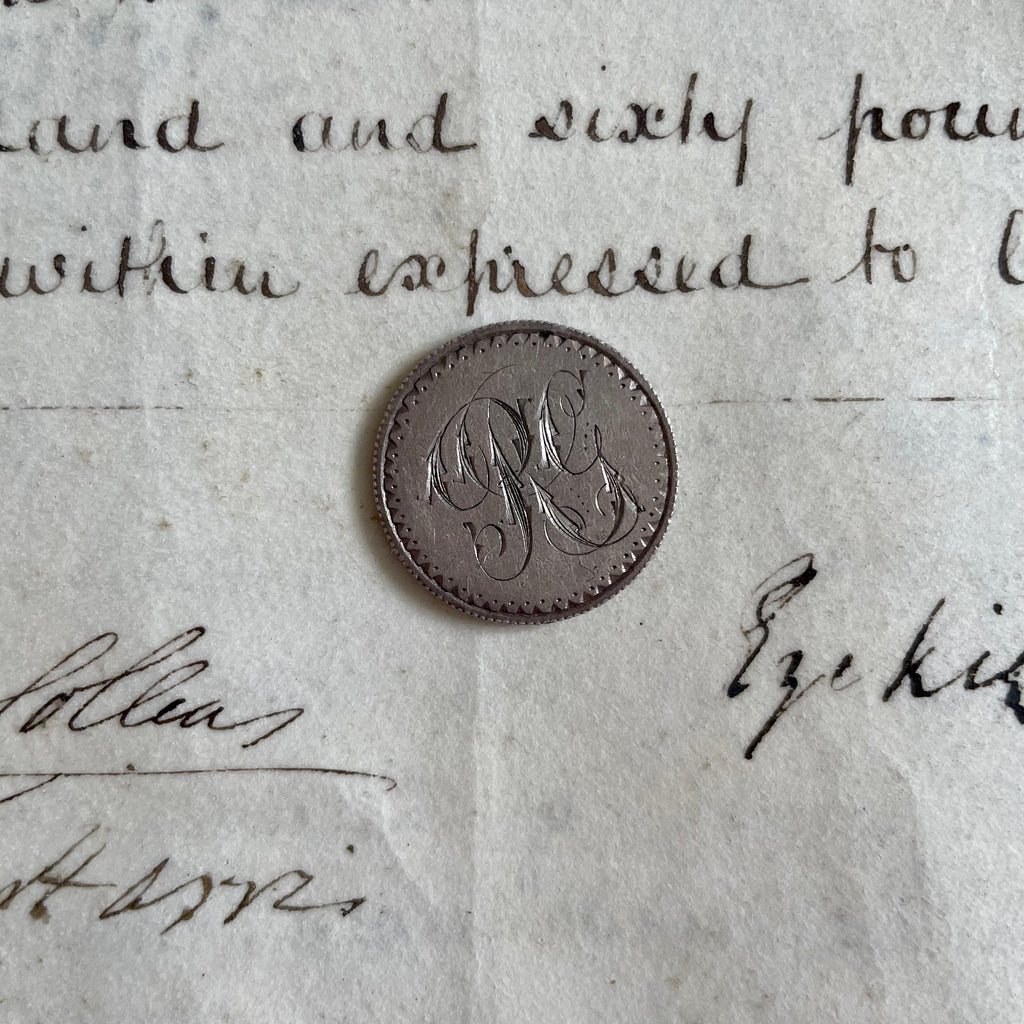 and and sixty poun
within expressed to
PG
Ezekie
Harris